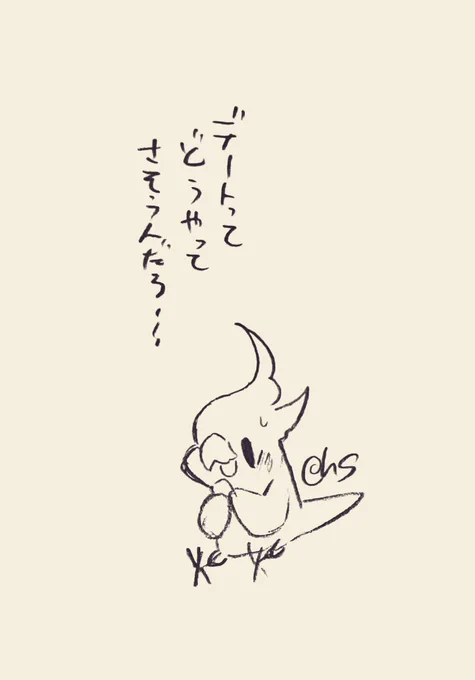 デートって
どうやって
さそうんだろ…
@hS